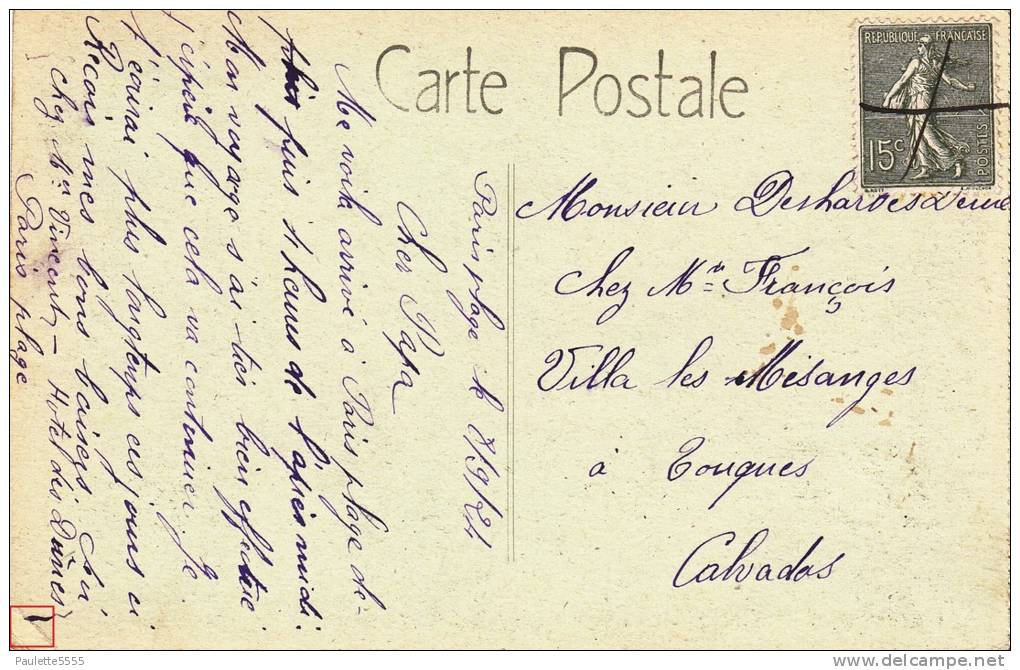 Carte Postale
RÉPUBLIQUE FRANÇAISE
15c
POSTES
Paris plage le 7/9/24
Cher Papa
Me voilà arrivé à Paris plage de-
puis 5 heures de l'après midi.
Mon voyage s'ai très bien effectué.
j'éspère que cela va contenuer. Je
t'écrirai plus longtemps ces jours ci
Recois mes bons baisers
(chez Mr Vincent - Hotel des Dûnes)
Paris plage
Monsieur
chez Mr François
Villa les Mésanges
à Touques
Calvados
Paulette5555
www.delcampe.net